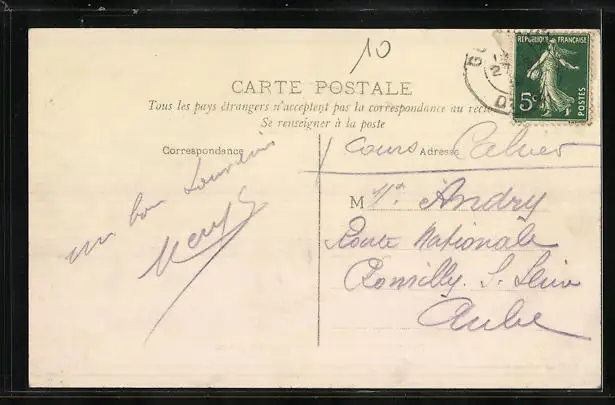 10
RÉPUBLIQUE FRANÇAISE
5c
POSTES
CARTE POSTALE
Tous les pays étrangers n'acceptent pas la correspondance au recto
Se renseigner à la poste
Correspondance
Adresse
Cours
un bon
M
Andry
Route Nationale
Romilly S. Seine
Aube